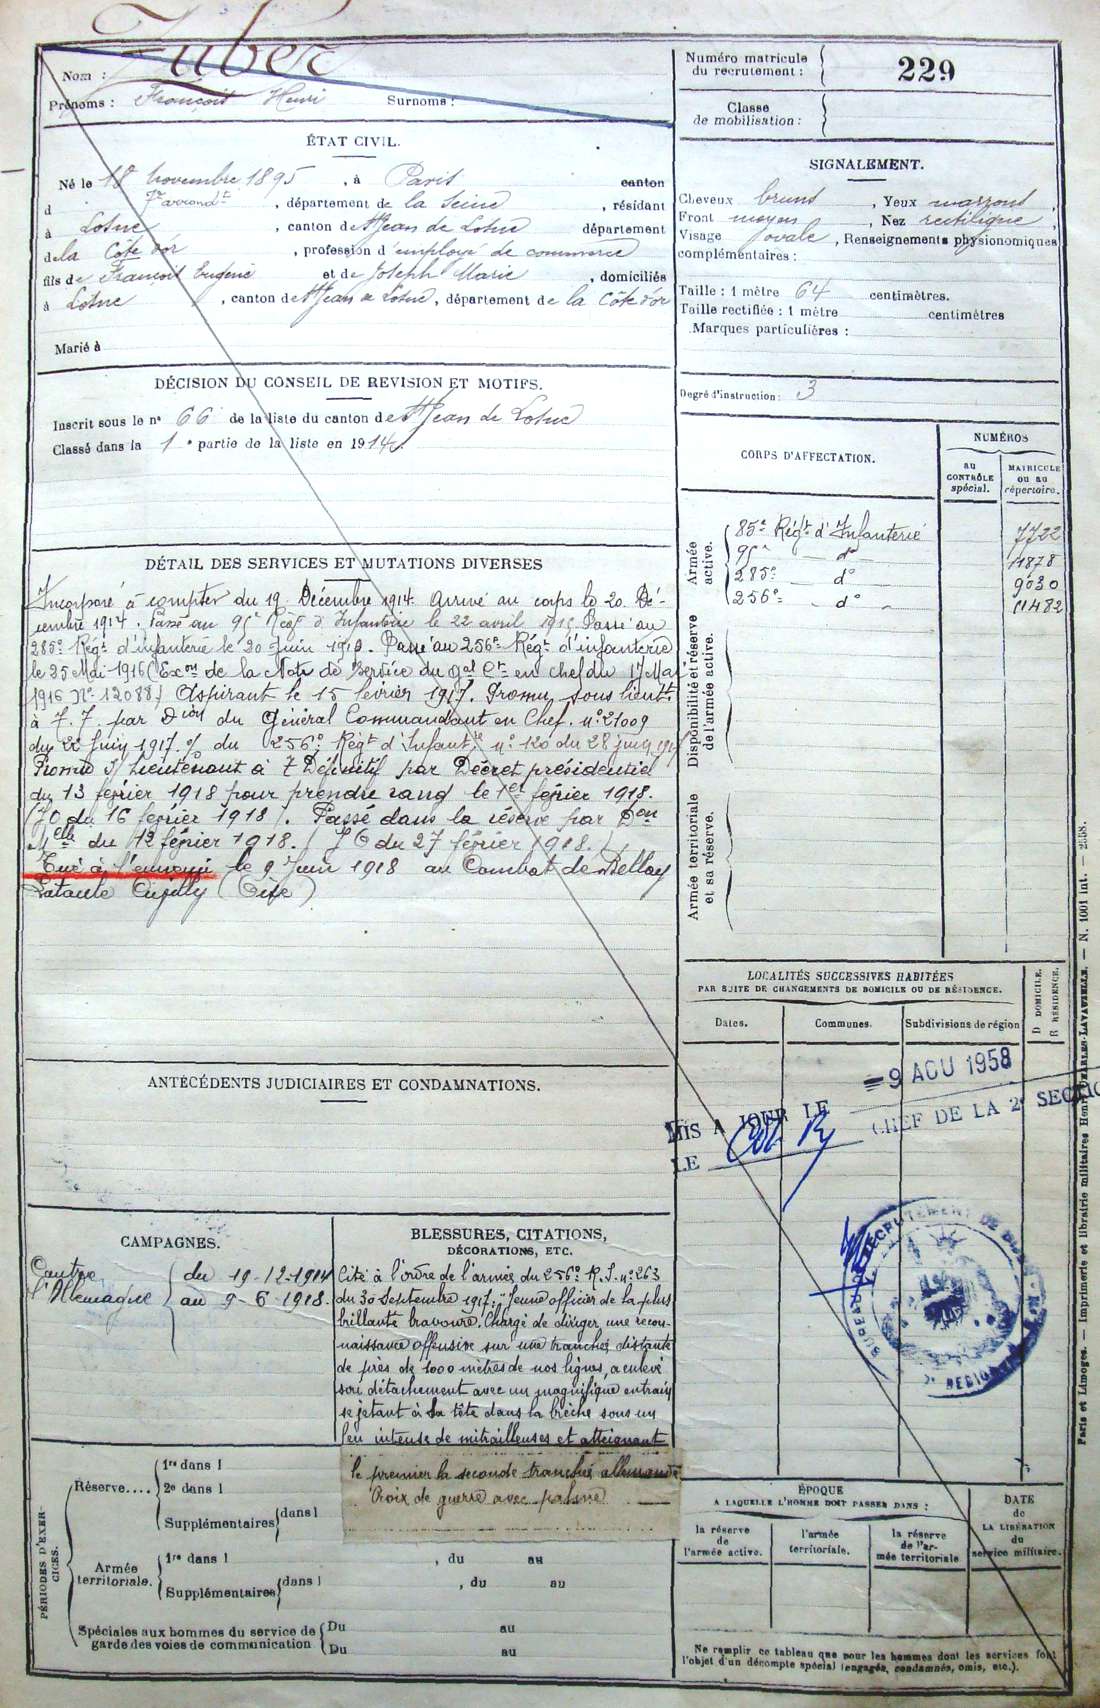 Nom : Zuber
Prénoms : François Henri Surnoms :
Numéro matricule du recrutement : 229
Classe de mobilisation :
ÉTAT CIVIL.
Né le 18 novembre 1895, à Paris canton
d 7e arrondt, département de la Seine, résidant
à Losne, canton de St Jean de Losne département
de la Côte d'or, profession d'employé de commerce
fils de François Eugène et de Joseph Marie, domiciliés
à Losne, canton de St Jean de Losne, département de la Côte d'or
Marié à
SIGNALEMENT.
Cheveux bruns, Yeux marrons,
Front moyen, Nez rectiligne,
Visage ovale, Renseignements physionomiques
complémentaires :
Taille : 1 mètre 64 centimètres.
Taille rectifiée : 1 mètre centimètres
Marques particulières :
Degré d'instruction : 3
DÉCISION DU CONSEIL DE REVISION ET MOTIFS.
Inscrit sous le n° 66 de la liste du canton de St Jean de Losne
Classé dans la 1e partie de la liste en 1914.
DÉTAIL DES SERVICES ET MUTATIONS DIVERSES
Incorporé à compter du 19 Décembre 1914. Arrivé au corps le 20 Dé-
cembre 1914. Passé au 95e Regt d'Infanterie le 22 avril 1915 Passé au
285e Régt d'infanterie le 20 Juin 1915. Passé au 256e Régt d'infanterie
le 25 Mai 1916 (Exon de la Note de Service du gal Ct en chef du 17 Mai
1916 N° 12088) Aspirant le 15 février 1917. Promu sous lieutt
à T. T. par Dion du Général Commandant en Chef. n° 21009
du 22 Juin 1917. % du 256e Régt d'Infantie n° 120 du 28 juin 1917
Promu S/ Lieutenant à T Définitif par Décret présidentiel
du 13 février 1918 pour prendre rang le 1er février 1918.
(JO du 16 février 1918). Passé dans la réserve par Don
Melle du 12 février 1918. (JO du 27 février 1918.)
Tué à l'ennemi le 9 Juin 1918 au Combat de Belloy
Lataule Cuvilly (Oise)
CORPS D'AFFECTATION.
NUMÉROS
au CONTRÔLE spécial.
MATRICULE ou au répertoire.
Armée active.
85e Régt d'Infanterie 7722
95e — do 11878
285e — do 9030
256e — do 11482
Disponibilité et réserve de l'armée active.
Armée territoriale et sa réserve.
LOCALITÉS SUCCESSIVES HABITÉES
PAR SUITE DE CHANGEMENTS DE DOMICILE OU DE RÉSIDENCE.
Dates.
Communes.
Subdivisions de région
D DOMICILE.
R RÉSIDENCE.
9 AOU 1958
MIS A JOUR LE
LE CHEF DE LA 2e SECTIO
BUREAU DE RECRUTEMENT DE DIJON
ANTÉCÉDENTS JUDICIAIRES ET CONDAMNATIONS.
CAMPAGNES.
Contre du 19-12-1914
l'Allemagne au 9-6-1918.
BLESSURES, CITATIONS,
DÉCORATIONS, ETC.
Cité à l'ordre de l'armée du 256e R.I. n° 263
du 30 Septembre 1917. "Jeune officier de la plus
brillante bravoure. Chargé de diriger une recon-
naissance offensive sur une tranchée distante
de près de 1000 mètres de nos lignes, a enlevé
son détachement avec un magnifique entrain
se jetant à sa tête dans la brèche sous un
feu intense de mitrailleuses et atteignant
le premier la seconde tranchée allemande
Croix de guerre avec palme
PÉRIODES D'EXERCICES.
Réserve....
1re dans l
2e dans l
Supplémentaires dans l
Armée territoriale.
1re dans l , du au
Supplémentaires dans l , du au
Spéciales aux hommes du service de
garde des voies de communication
Du au
Du au
ÉPOQUE
A LAQUELLE L'HOMME DOIT PASSER DANS :
la réserve de l'armée active.
l'armée territoriale.
la réserve de l'armée territoriale
DATE de LA LIBÉRATION du service militaire.
Ne remplir ce tableau que pour les hommes dont les services font
l'objet d'un décompte spécial (engagés, condamnés, omis, etc.).
Paris et Limoges. — Imprimerie et librairie militaires Henri CHARLES-LAVAUZELLE. — N. 1001 int. — 2558.